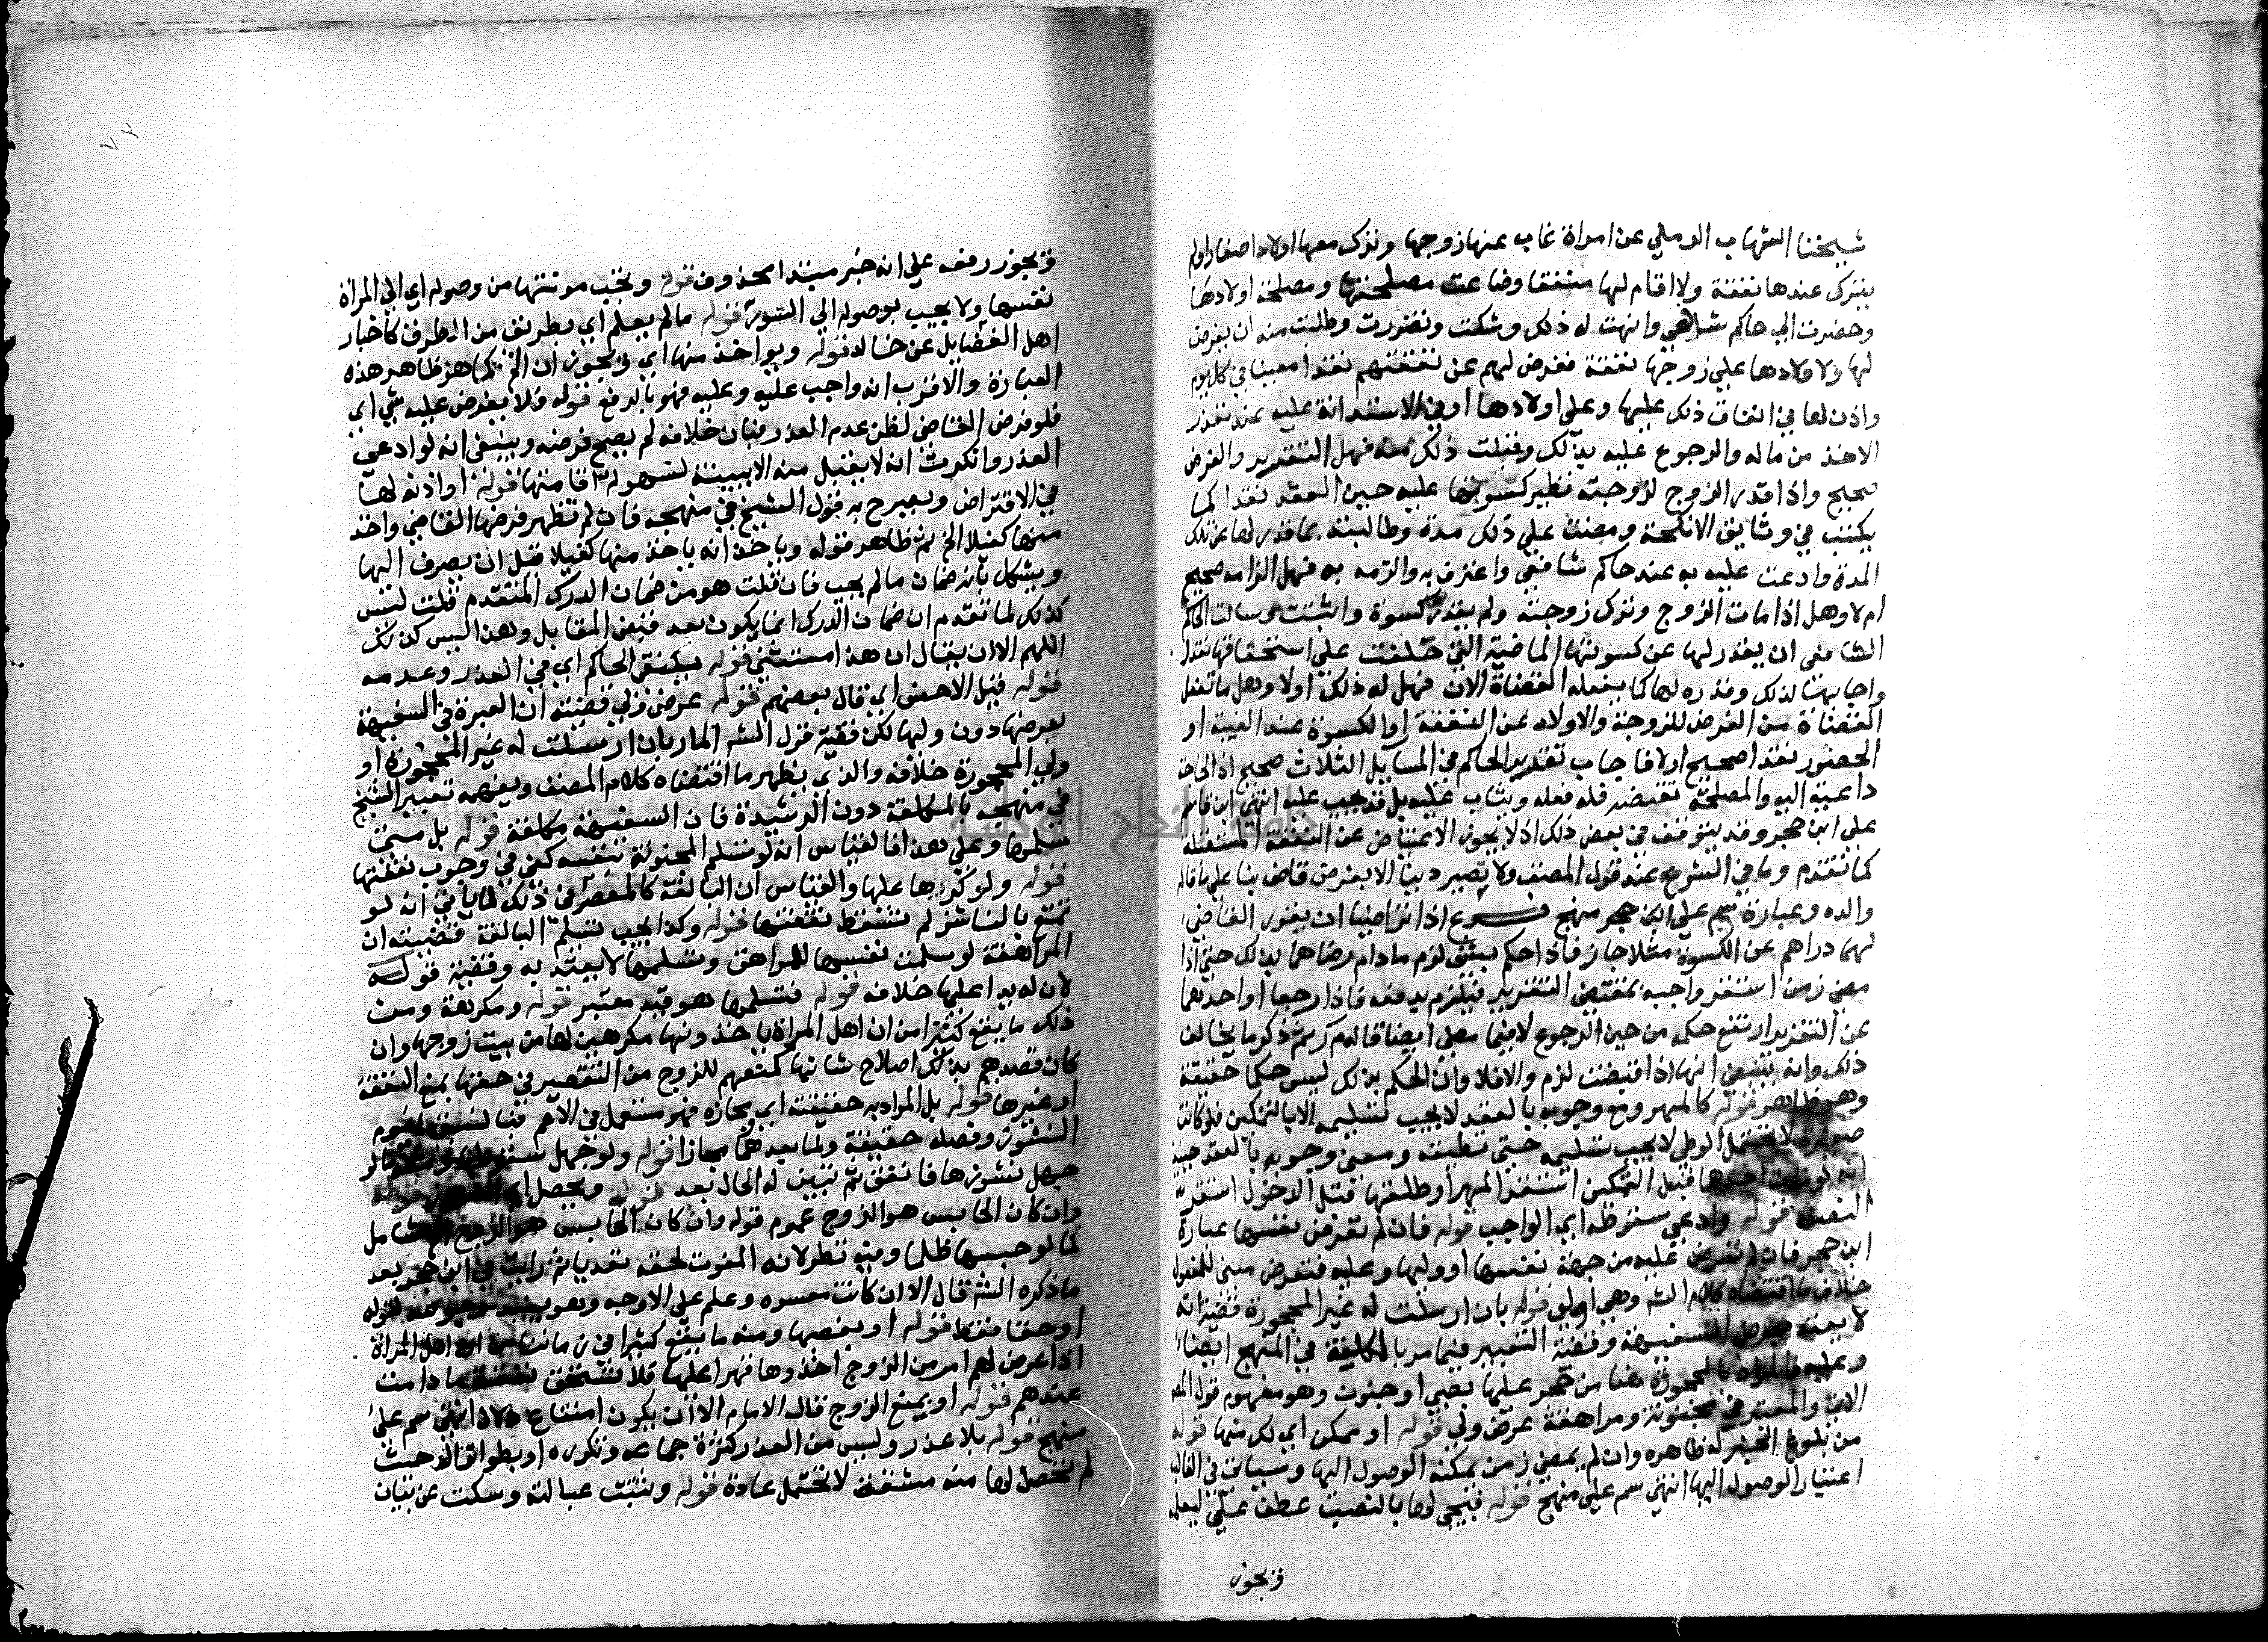 شيخنا الشهاب الرملي عن امراة غاب عنها زوجها وترك معها اولادا صغارا ولم
يترك عندها نفقة ولا اقام لها منفقا وضاعت مصلحتها ومصلحة اولادها
وحضرت الى حاكم شافعي وانهت له ذلك وشكت وتضررت وطلبت منه ان يفرض
لها ولاولادها على زوجها نفقة ففرض لهم عن نفقتهم نقدا معينا في كل يوم
واذن لها في انفاق ذلك عليها وعلى اولادها او في الاستدانة عليه عند تعذر
الاخذ من ماله والرجوع عليه بذلك وقبلت ذلك منه فهل التقدير والفرض
صحيح واذا قدر الزوج لزوجته نظير كسوتها عليه حين العقد نقدا كما
يكتب في وثايق الانكحة ومضت على ذلك مدة وطالبته بما قدر لها عن تلك
المدة وادعت عليه به عند حاكم شافعي واعترف به والزمه به فهل الزامه صحيح
ام لا وهل اذا مات الزوج وترك زوجته ولم يقدر لها كسوة واثبتت وسالت الحاكم
الشافعي ان يقدر لها عن كسوتها الماضية التي حلفت على استحقاقها نقدا
واجابها لذلك وقدره لها كما يفعله القضاة الان فهل له ذلك اولا وهل ما تفعل
القضاة من الفرض للزوجة والاولاد عن النفقة او الكسوة عند الغيبة او
الحضور نقدا صحيح اولا فاجاب تقدير الحاكم في المسايل الثلاث صحيح اذ الحاجة
داعية اليه والمصلحة تقتضيه فله فعله ويثاب عليه بل قد يجب عليه انتهى ابن قاسم
على ابن حجر وقد يتوقف في بعض ذلك اذ لا يجوز الاعتياض عن النفقة المستقبلة
كما تقدم وما في الشرع عند قول المصنف ولا تصير دينا الا بفرض قاض بنا على ما قاله
والده وعبارة سم على ابن حجر منهج فرع اذا تراضيا ان يقرر القاضي
لهما دراهم عن الكسوة مثلا جاز فاذا حكم بشي لزم ما دام رضاهما بذلك حتى اذا
مضى زمن استقر واجبه بمقتضى التقرير فيلزم بدفعه فاذا رجعا او احدهما
عن التقرير ارتفع حكمه من حين الرجوع لا فيما مضى ايضا قاله م ر ثم ذكر ما يخالف
ذلك وانه ينبغي انها اذا قبضت لزم والا فلا وان الحكم بذلك ليس حكما حقيقة
وهو ظاهر قوله كالمهر ومع وجوبه بالعقد لا يجب تسليمه الا بالتمكين فلو كانت
صغيرة لا تحتمل الوطي لا يجب تسليمه حتى تطيقه ومعنى وجوبه بالعقد حينئذ
انه لو مات احدهما قبل التمكين استقر المهر او طلقها قبل الدخول استقر
النصف قوله وادعى سقوطه اي الواجب قوله فان لم تعرض نفسها عبارة
ابن حجر فان لم تعرض عليه من جهة نفسها او وليها وعليه فتعرض مبني للمفعول
خلاف ما اقتضاه كلام الشه وهي اولى قوله بان ارسلت له غير المحجورة قضيته انه
لا يعتد بعرض السفيهة وقضية التعبير فيما مر بالمكلفة في المنهج ايضا
وعليه فالمراد بالمحجورة هنا من حجر عليها بصبى او جنون وهو مفهوم قول المص
الاتي والمعتبر في مجنونة ومراهقة عرض ولي قوله او ممكن اي لك منها قوله
من بلوغ الخبر له ظاهره وان لم يمض زمن يمكنه الوصول اليها وسياتي في الغايب
اعتبار الوصول اليها انتهى سم على منهج قوله فيجي لها بالنصب عطف على ليعلم
ويجوز
ويجوز رفعه على انه خبر مبتدا محذوف قوله وتجب مونتها من وصوله اي الى المراة
نفسها ولا يجب بوصوله الى السور قوله ما لم يعلم اي بطريق من الطرق كاخبار
اهل القضا بل عن حاله قوله ويواخذ منها اي ويجوز ان الخ كما هو ظاهر هذه
العبارة والاقرب انه واجب عليه وعليه فهو بالرفع قوله فلا يفرض عليه شي اي
فلو فرض القاضي لظن عدم العذر فبان خلافه لم يصح فرضه وينبغي انه لو ادعى
العذر وانكرت انه لا يقبل منه الا ببينة لسهولة اقامتها قوله او اذنه لها
في الاقتراض ويصرح به قول الشيخ في منهجه فان لم تظهر فرضها القاضي واخذ
منها كفيلا الخ ثم ظاهر قوله وياخذ انه ياخذ منها كفيلا قبل ان يصرف اليها
ويشكل بانه ضمان ما لم يجب فان قلت هو من ضمان الدرك المتقدم قلت ليس
كذلك لما تقدم ان ضمان الدرك انما يكون بعد قبض المقابل وهذا ليس كذلك
اللهم الا ان يقال ان هذا مستثنى قوله يكتفي الحاكم اي في العذر وعدمه
قوله قيل الاحسن اي قال بعضهم قوله عرض ولي قضيته ان العبرة في السفيهة
بعرضها دون وليها لكن قضية قول الشه المار بان ارسلت له غير المحجورة او
ولي المحجورة خلافه والذي يظهر ما اقتضاه كلام المصنف ويفهمه تعبير الشيخ
في منهجه بالمكلفة دون الرشيدة فان السفيهة مكلفة قوله بل متى
سلمها وعلى هذا فالقياس انه لو تسلم المجنونة بنفسه كفى في وجوب نفقتها
قوله ولو كرها عليها والقياس ان البالغة كالمعصر في ذلك لما ياتي انه لو
تمتع بالناشز لم تسقط نفقتها قوله وكذا يجب تسلم البالغة قضيته ان
المراهقة لو سلمت نفسها للمراهق وتسلمها لا يعتد به وقضية قوله
لان له يدا عليها خلافه قوله فتسلمها هو قيد معتبر قوله ومكرهة ومن
ذلك ما يقع كثيرا من ان اهل المراة ياخذونها مكرهين لها من بيت زوجها وان
كان قصدهم بذلك اصلاح شانها كمنعهم للزوج من التقصير في حقها بمنع النفقة
او غيرها قوله بل المراد به حقيقته اي مجازه فهو مستعمل في الاعم
النشوز وفصله حقيقة ولما بعدهما مجازا قوله ولو جهل سقوطها
جهل نشوزها فانفق ثم تبين له الحال بعد قوله ويحصل اي
وان كان الحابس هو الزوج عموم قوله وان كان الحابس هو الزوج شامل
لما لو حبسها ظلما وفيه نظر لانه المفوت لحقه تعديا ثم رايت في ابن حجر بعد
ما ذكره الشه قال الا ان كانت معسره وعلم على الاوجه
او حقا فقط قوله او بغصبها ومنه ما يقع كثيرا في زماننا من ان اهل المراة
اذا عرض لهم امر من الزوج اخذوها قهرا عليها فلا تستحق نفقة ما دامت
عندهم قوله او يمنع الزوج قال الامام الا ان يكون امتناع دلال انتهى سم على
منهج قوله بلا عذر وليس من العذر كثرة جماعه وتكرره او بطوء انزاله حيث
لم يحصل لها منه مشقة لا تحتمل عادة قوله وتثبت عبالته وسكت عن بيان